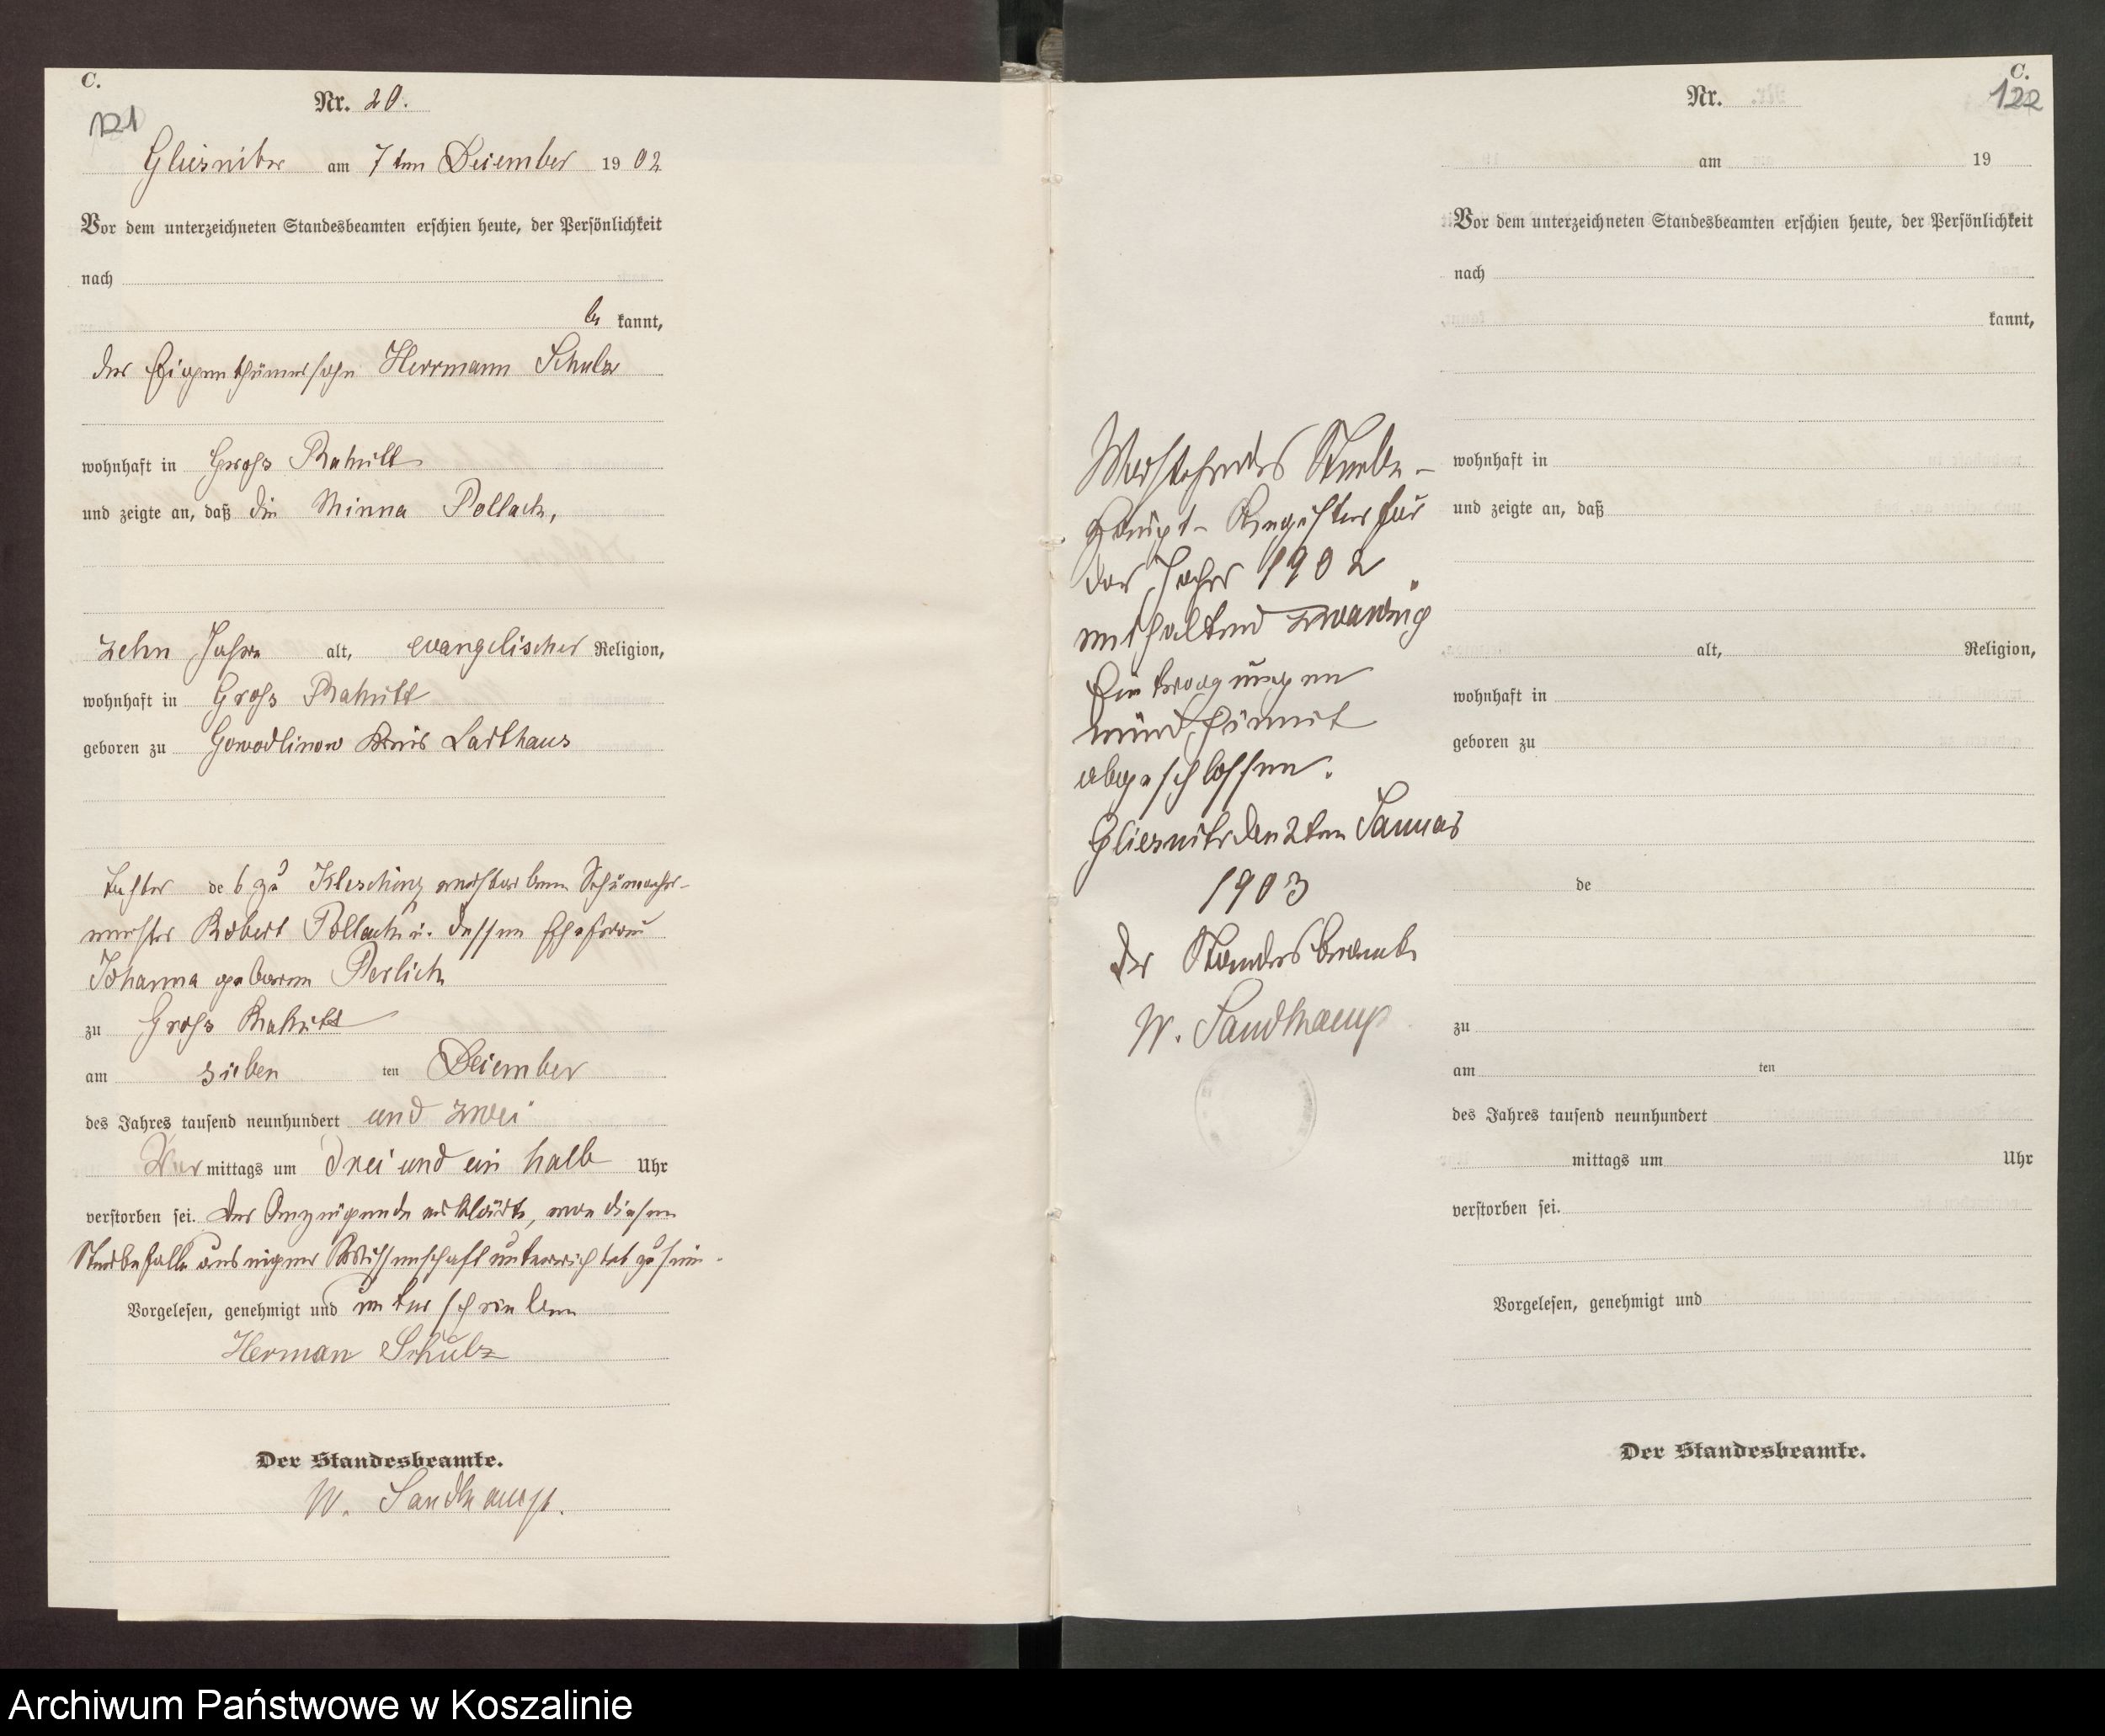 C.
121
Nr. 20.
Gliesnitz am 7ten Dezember 1902
Vor dem unterzeichneten Standesbeamten erschien heute, der Persönlichkeit
nach
be kannt,
der Eigenthümersohn Herrmann Schulz
wohnhaft in Gross Rakitt
und zeigte an, daß die Minna Pollack,
zehn Jahre alt, evangelischer Religion,
wohnhaft in Gross Rakitt
geboren zu Gowodlinow Kreis Carthaus
Tochter des zu Kleschinz verstorbenen Schumacher-
meister Robert Pollack u. dessen Ehefrau
Johanna geboren Perlick
zu Gross Rakitt
am sieben ten Dezember
des Jahres tausend neunhundert und zwei
Vor mittags um drei und ein halb Uhr
verstorben sei. Der Anzeigende erklärte, von diesem
Sterbefalle aus eigener Wissenschaft unterrichtet zu sein.
Vorgelesen, genehmigt und unterschrieben
Herman Schulz
Der Standesbeamte.
W. Sandkamp.
C.
122
Nr.
am 19
Vor dem unterzeichneten Standesbeamten erschien heute, der Persönlichkeit
nach
kannt,
Vorstehendes Sterbe-
Haupt-Register für
das Jahr 1902
enthaltend zwanzig
Eintragungen
wird hirmit
abgeschlossen.
Gliesnitz den 2ten Januar
1903
Der Standesbeamte
W. Sandkamp
wohnhaft in
und zeigte an, daß
alt, Religion,
wohnhaft in
geboren zu
de
zu
am ten
des Jahres tausend neunhundert
mittags um Uhr
verstorben sei.
Vorgelesen, genehmigt und
Der Standesbeamte.
Archiwum Państwowe w Koszalinie